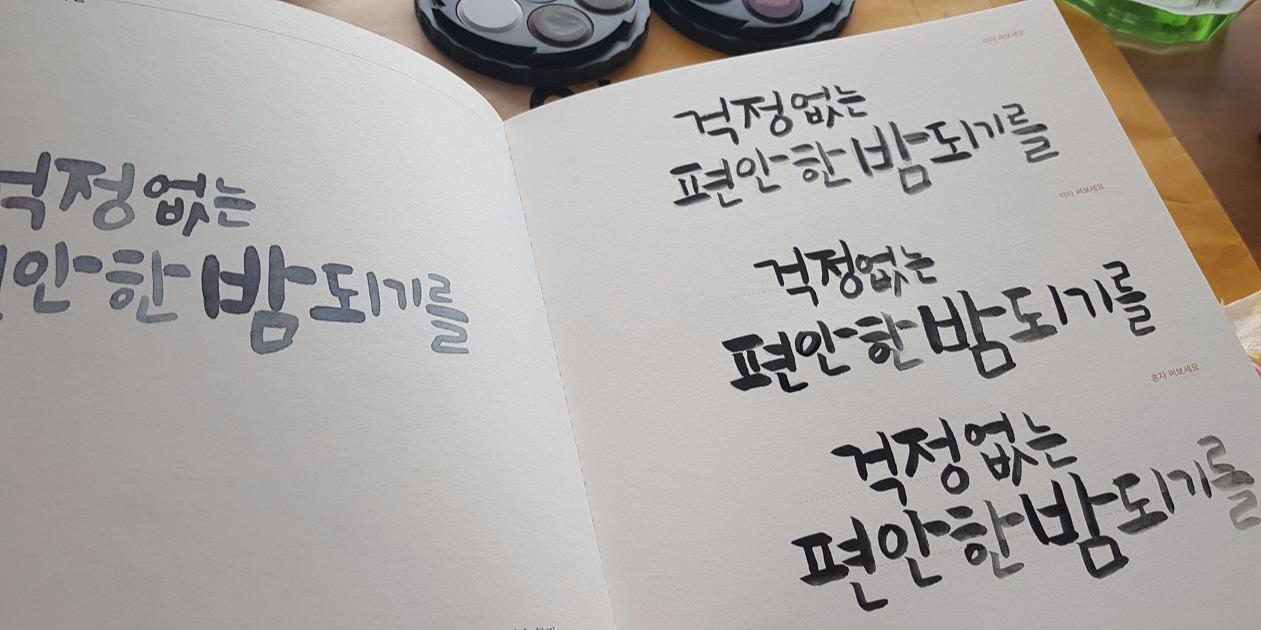 걱정없는
안한밤되기를
따라 써보세요
걱정없는
편안한밤되기를
따라 써보세요
걱정없는
편안한밤되기를
혼자 써보세요
걱정없는
편안한밤되기를